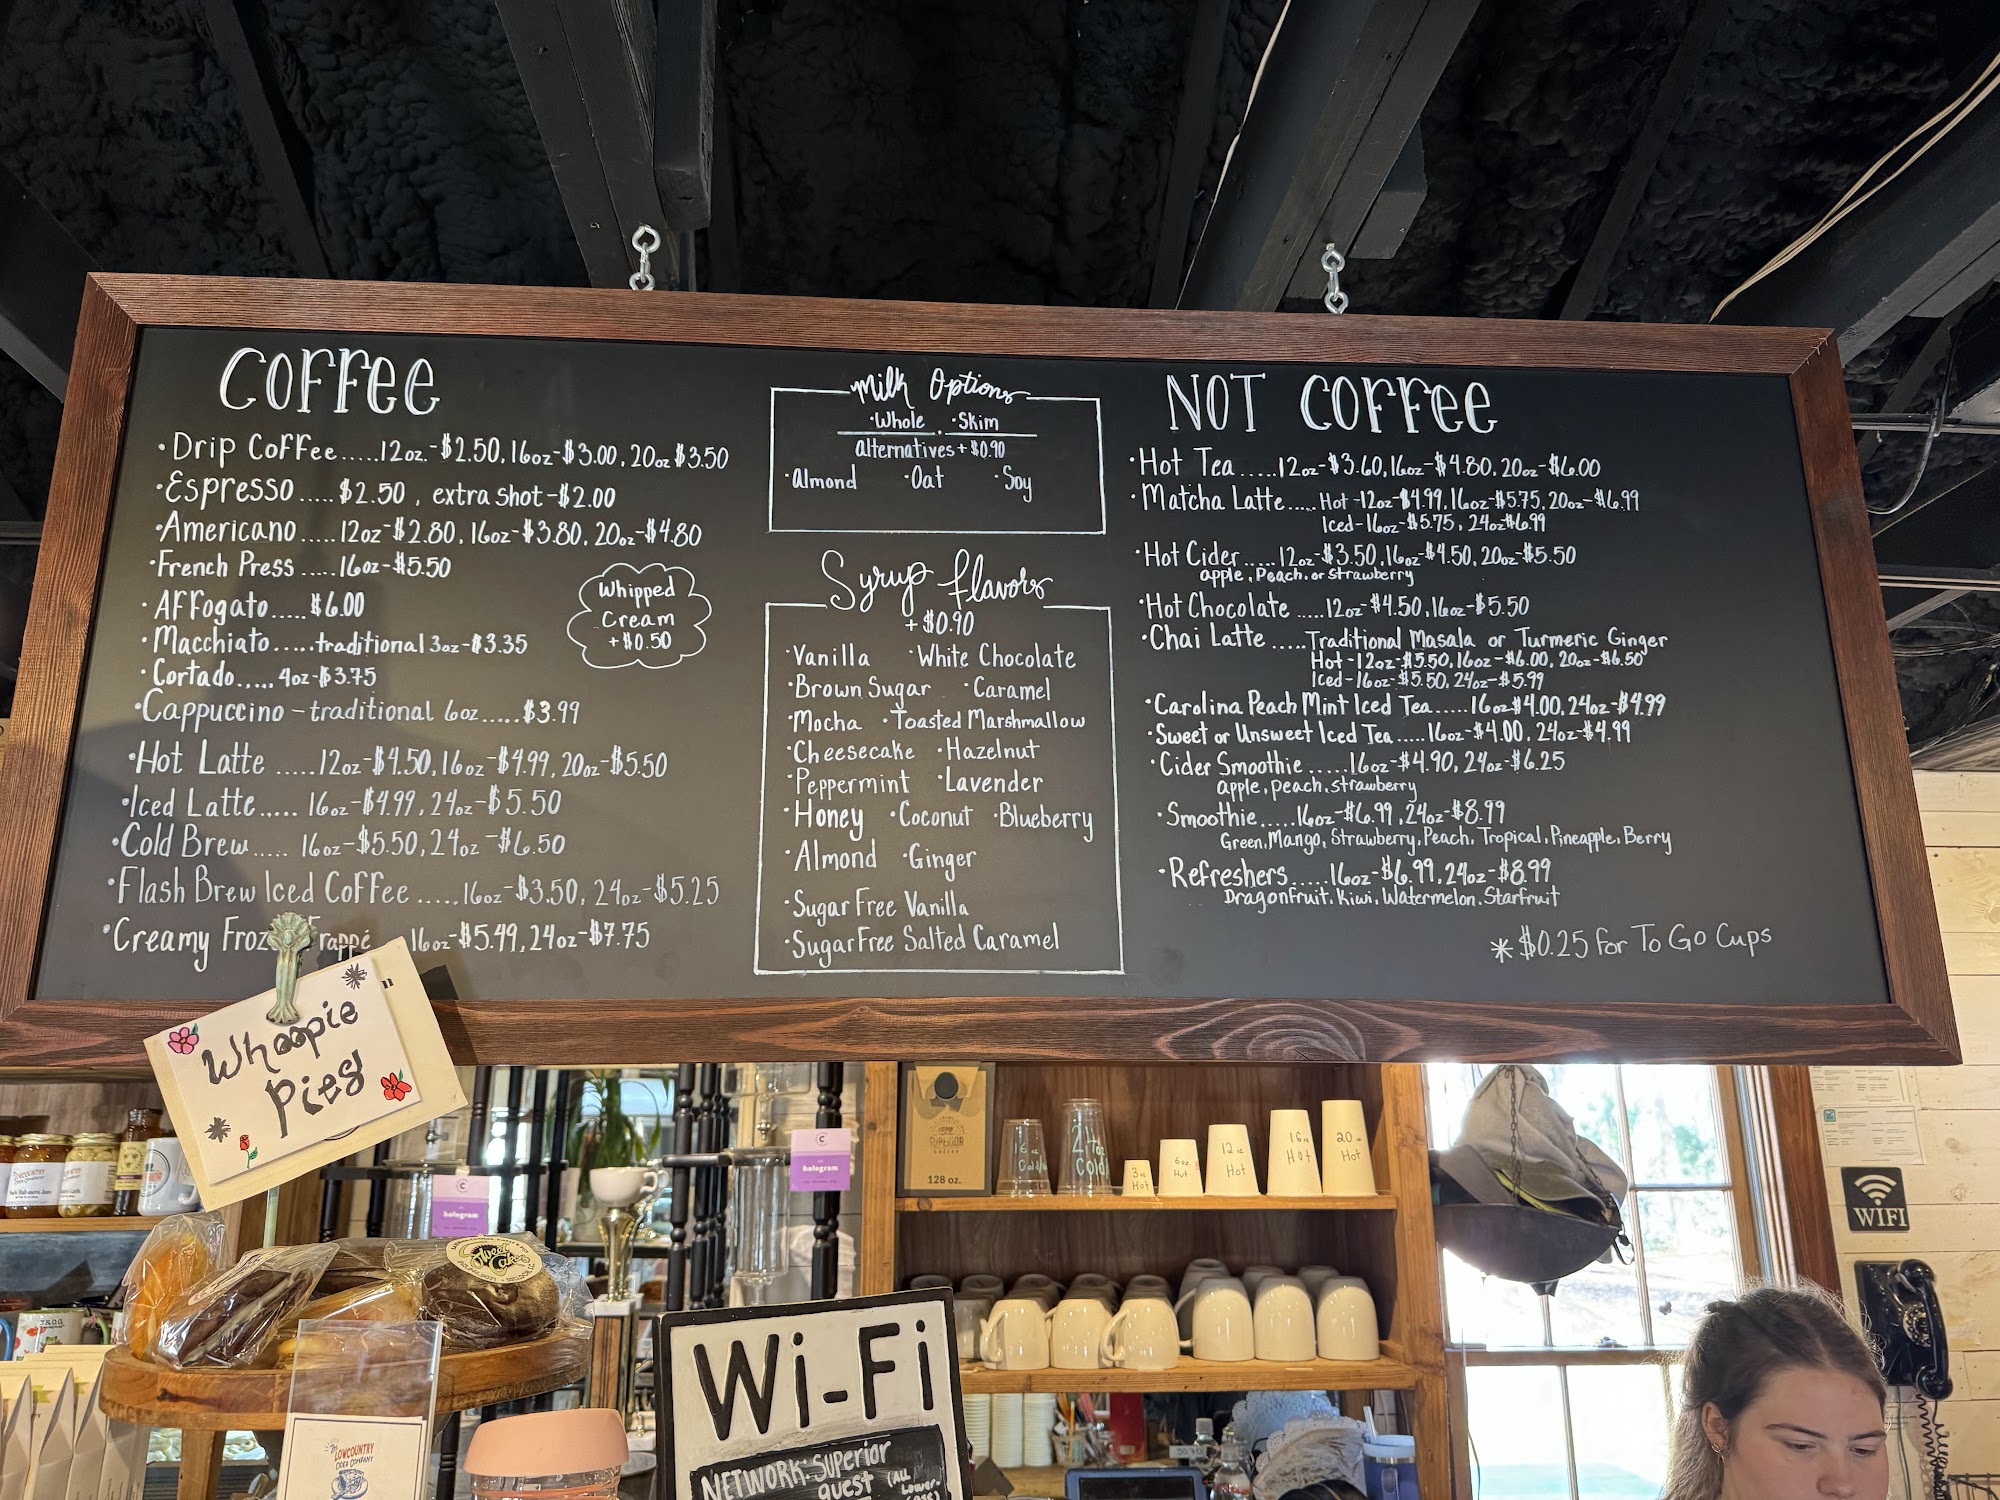 COFFEE
·Drip Coffee.....12oz.-$2.50, 16oz-$3.00, 20oz $3.50
·Espresso.....$2.50, extra shot-$2.00
·Americano.....12oz-$2.80, 16oz-$3.80, 20oz-$4.80
·French Press.....16oz-$5.50
·Affogato.....$6.00
·Macchiato.....traditional 3oz-$3.35
·Cortado.....4oz-$3.75
·Cappuccino-traditional 6oz.....$3.99
·Hot Latte.....12oz-$4.50, 16oz-$4.99, 20oz-$5.50
·Iced Latte.....16oz-$4.99, 24oz-$5.50
·Cold Brew.....16oz-$5.50, 24oz-$6.50
·Flash Brew Iced Coffee.....16oz-$3.50, 24oz-$5.25
·Creamy 16oz-$5.49, 24oz-$7.75
Whipped
Cream
+$0.50
Milk Options
·Whole ·Skim
Alternatives+$0.90
·Almond ·Oat ·Soy
Syrup flavors
+$0.90
·Vanilla ·White Chocolate
·Brown Sugar ·Caramel
·Mocha ·Toasted Marshmallow
·Cheesecake ·Hazelnut
·Peppermint ·Lavender
·Honey ·Coconut ·Blueberry
·Almond ·Ginger
·Sugar Free Vanilla
·Sugar Free Salted Caramel
NOT COFFEE
·Hot Tea.....12oz-$3.60, 16oz-$4.80, 20oz-$6.00
·Matcha Latte.....Hot-12oz-$4.99, 16oz-$5.75, 20oz-$6.99
Iced-16oz-$5.75, 24oz$6.99
·Hot Cider.....12oz-$3.50, 16oz-$4.50, 20oz-$5.50
apple, Peach, or strawberry
·Hot Chocolate.....12oz-$4.50, 16oz-$5.50
·Chai Latte.....Traditional Masala or Turmeric Ginger
Hot-12oz-$5.50, 16oz-$6.00, 20oz-$6.50
Iced-16oz-$5.50, 24oz-$5.99
·Carolina Peach Mint Iced Tea.....16oz$4.00, 24oz-$4.99
·Sweet or Unsweet Iced Tea.....16oz-$4.00, 24oz-$4.99
·Cider Smoothie.....16oz-$4.90, 24oz-$6.25
apple, peach, strawberry
·Smoothie.....16oz-$6.99, 24oz-$8.99
Green, Mango, Strawberry, Peach, Tropical, Pineapple, Berry
·Refreshers.....16oz-$6.99, 24oz-$8.99
Dragonfruit, Kiwi, Watermelon, Starfruit
*$0.25 for To Go Cups
Whoopie
Pies
hologram
hologram
SUPERIOR
128 oz.
16oz
24oz
Cold
3oz
Hot
6oz
Hot
12oz
Hot
16oz
Hot
20oz
Hot
WIFI
Sweet
Cakes
LOWCOUNTRY
CIDER COMPANY
Wi-Fi
NETWORK: Superior
guest (ALL
Lower-
case)